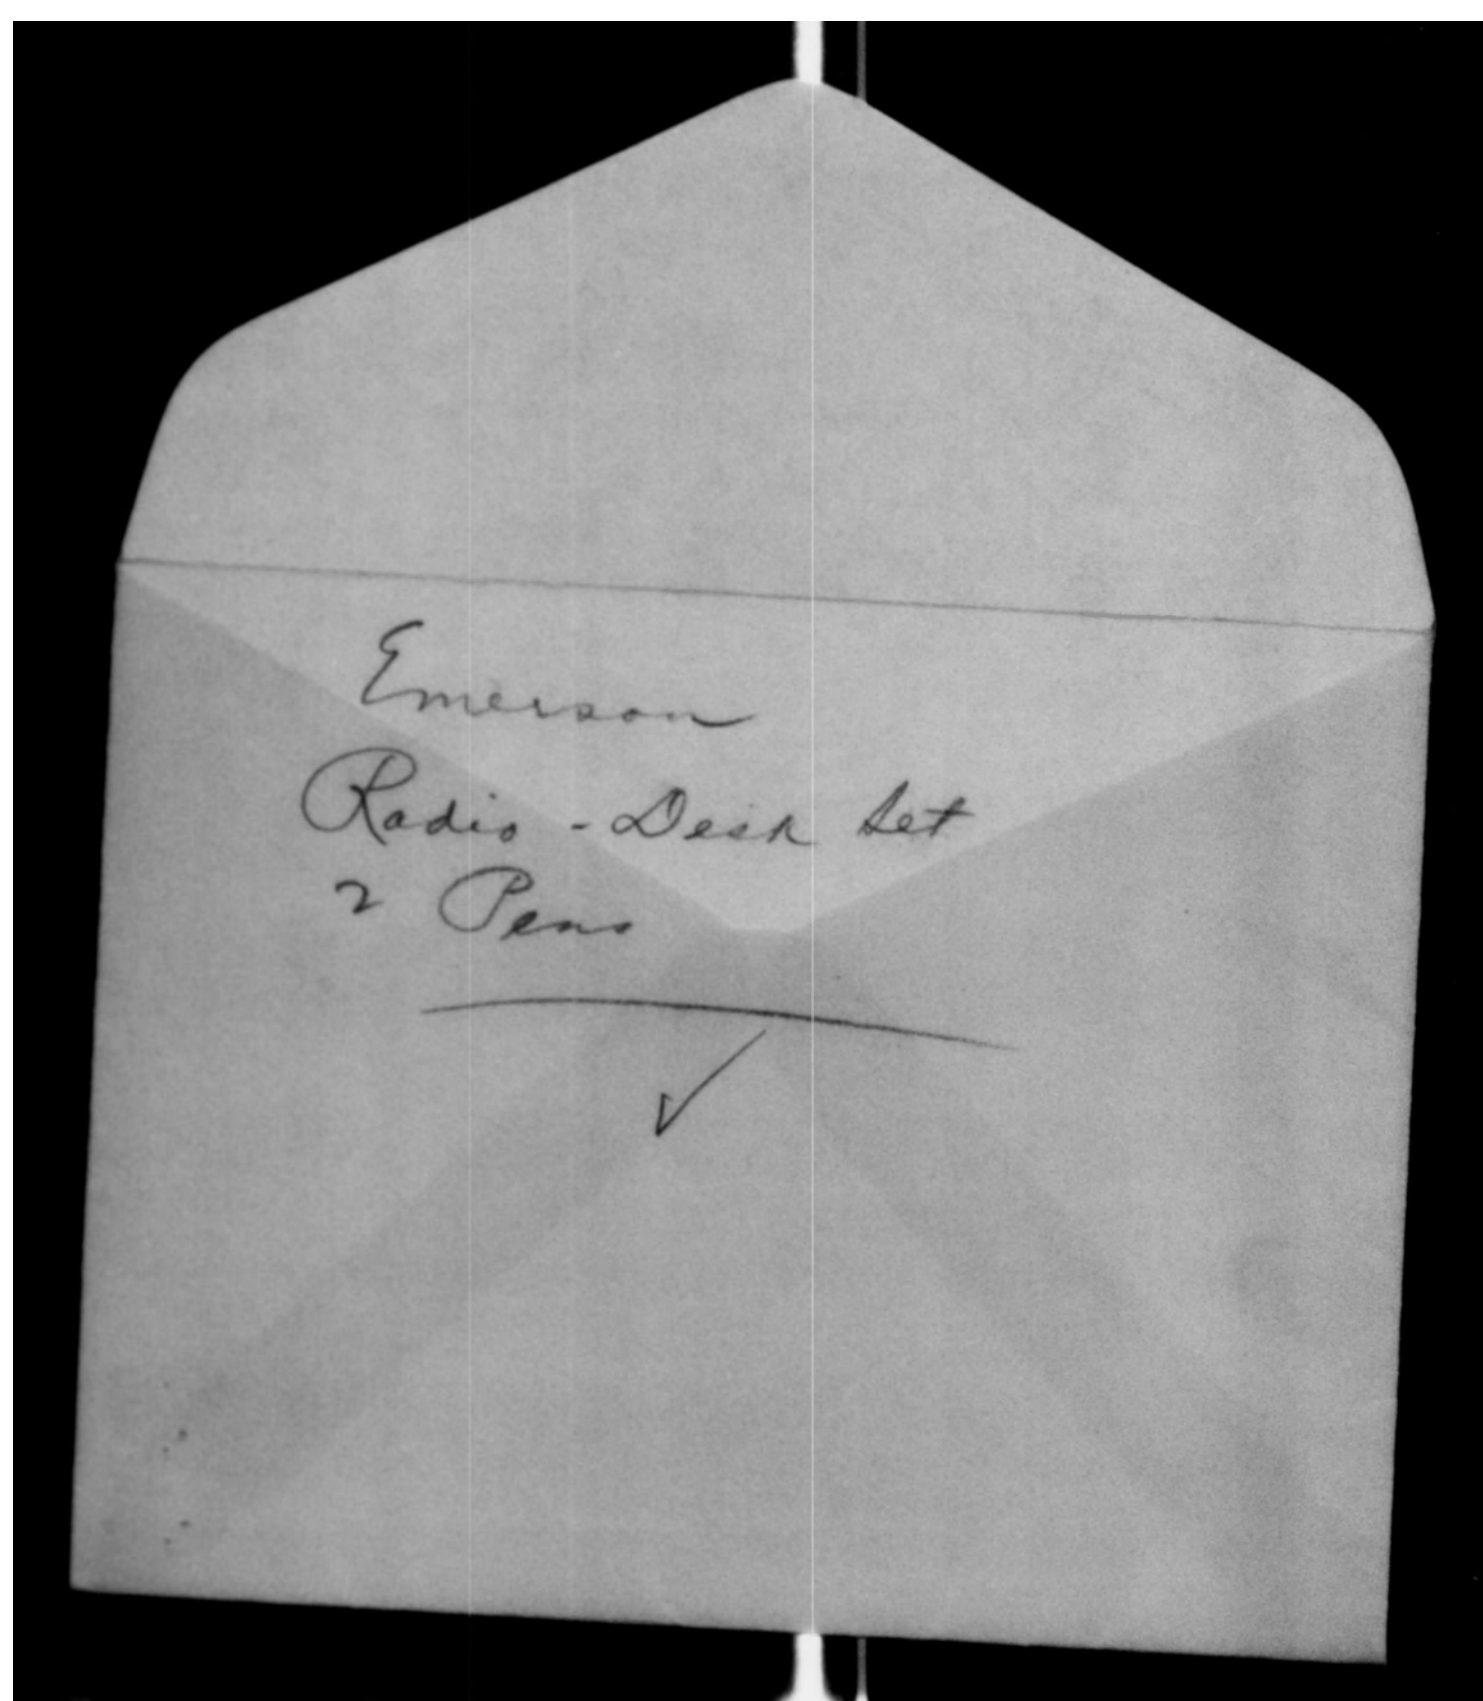 Emerson
Radio - Desk Set
2 Pens
✓